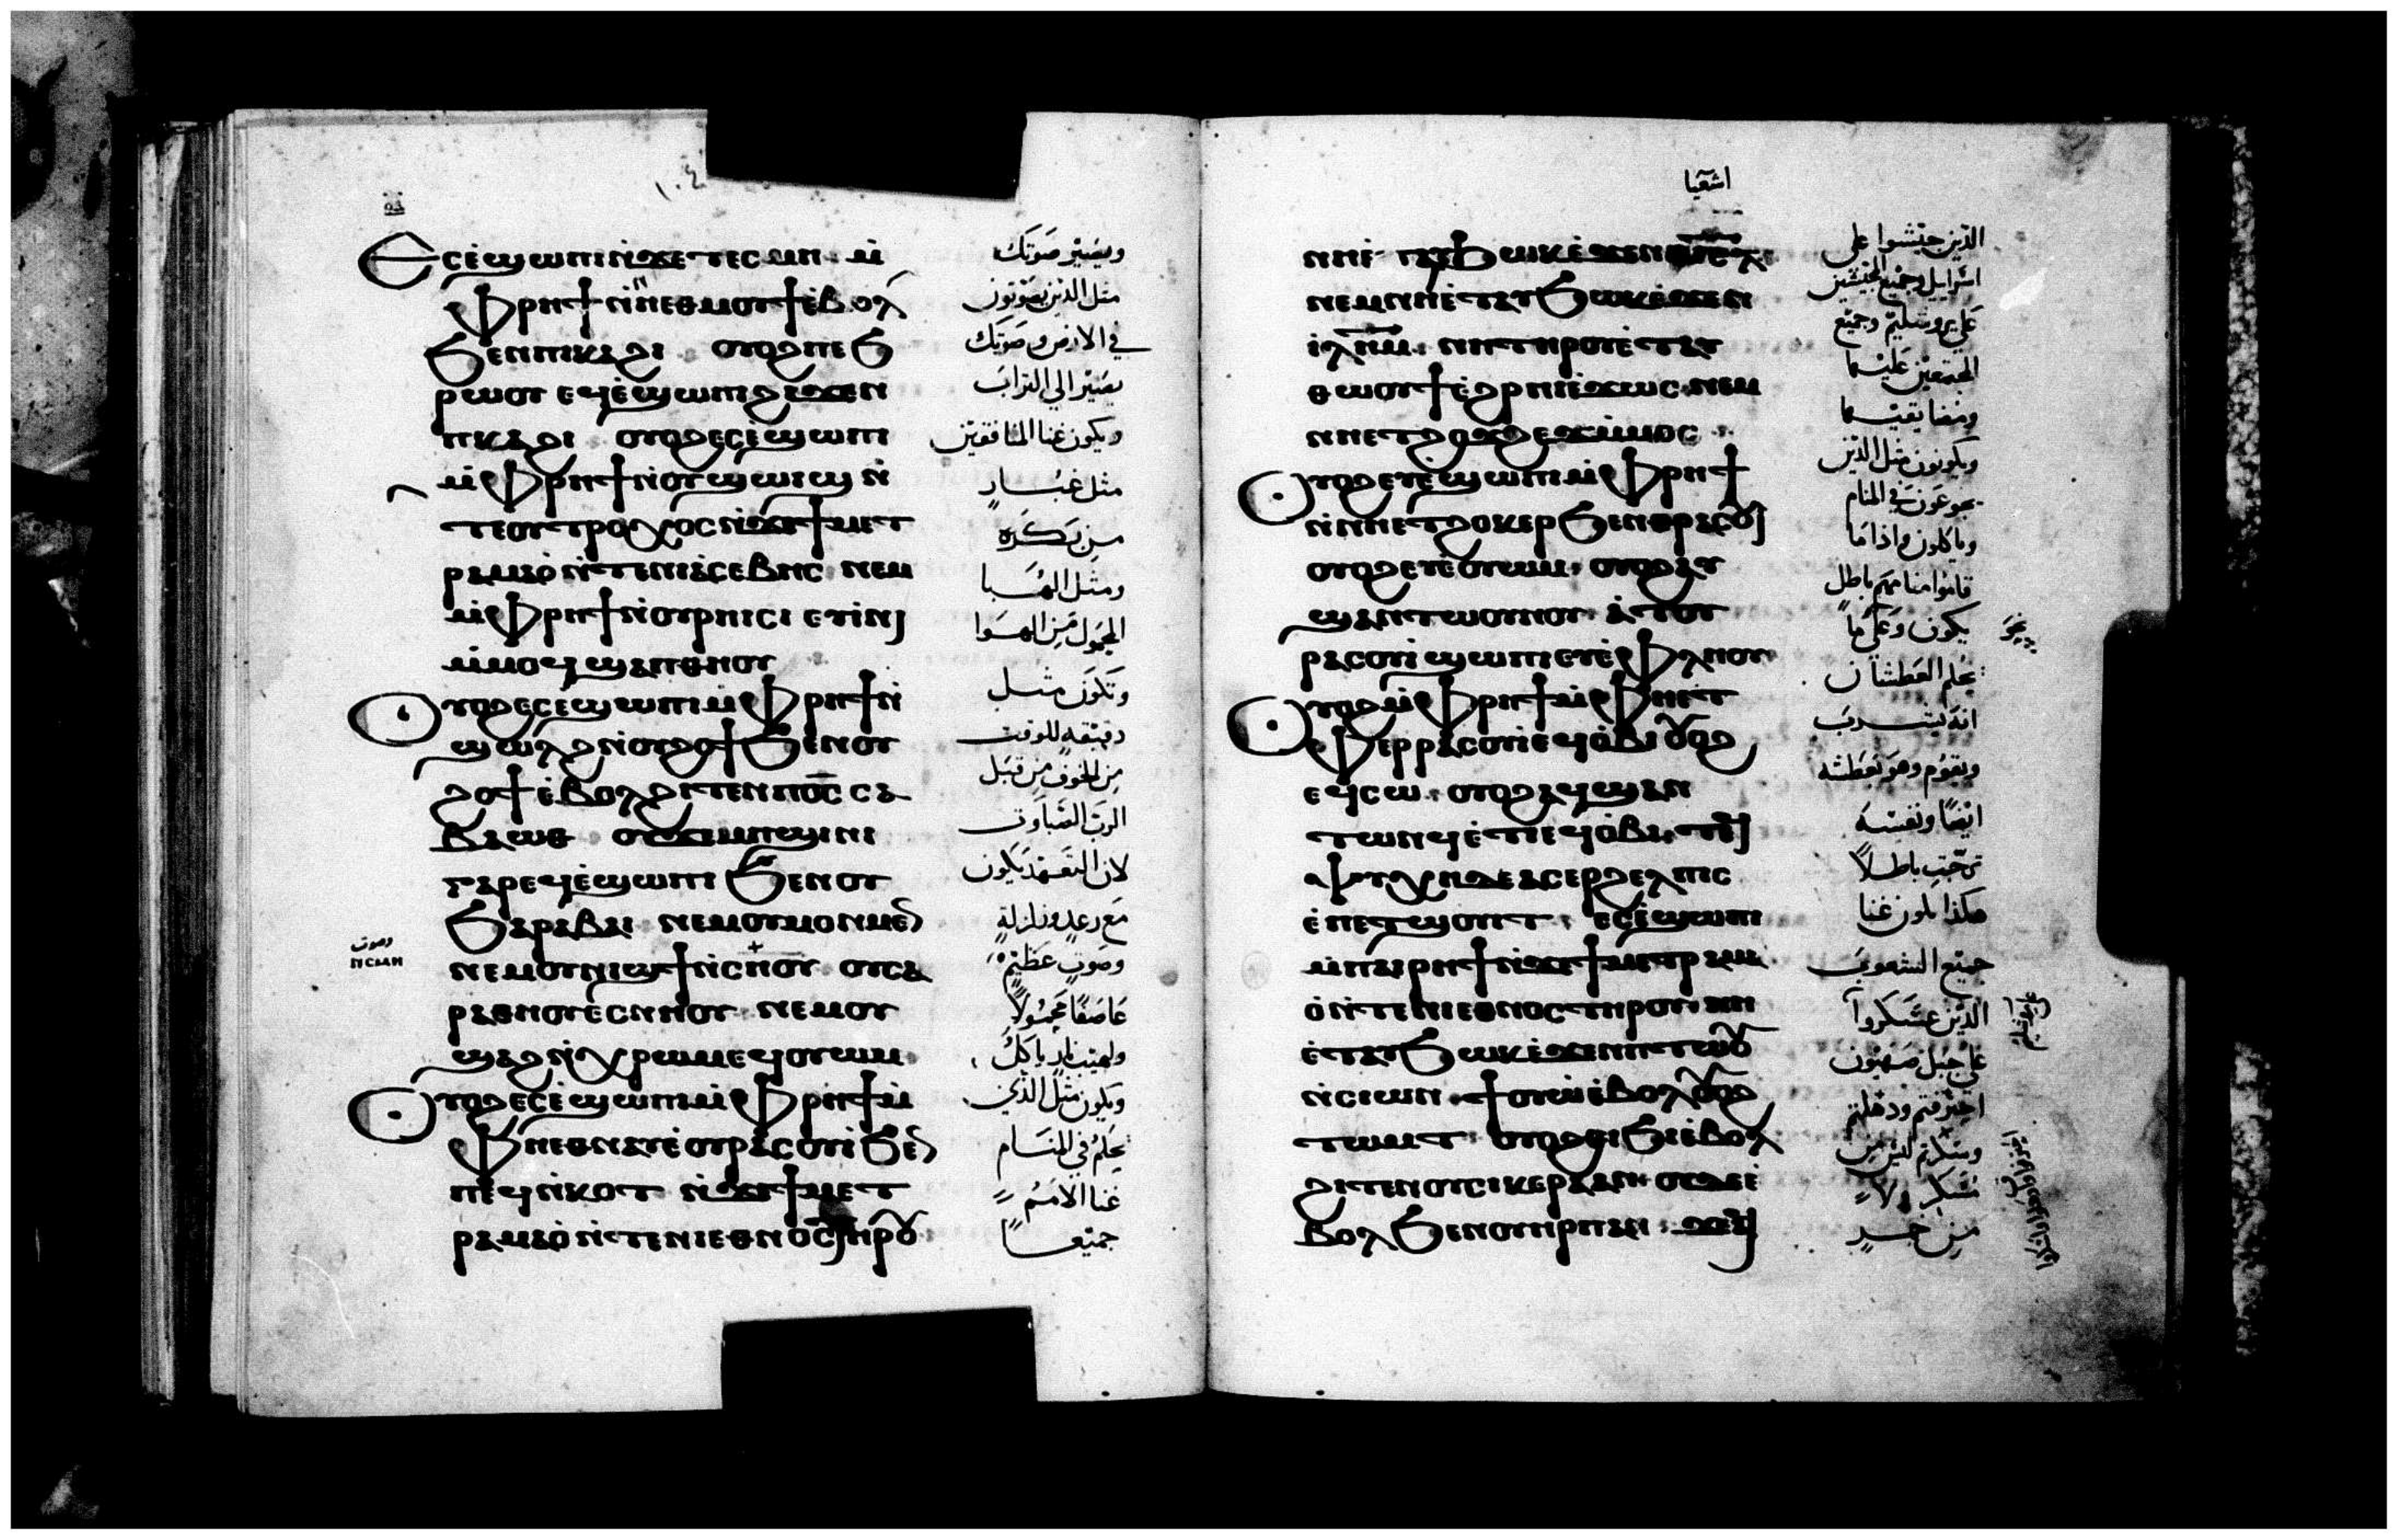 ١٠٤
ⲉⲥⲉ̀ϣⲱⲡⲓ ⲛ̀ϫⲉ ⲧⲉⲥⲙⲏ ⲙ̀
ⲫⲣⲏϯ ⲛ̀ⲛⲉⲑⲙⲟⲩϯ ⲉ̀ⲃⲟⲗ
ϧⲉⲛ ⲡⲕⲁϩⲓ ⲟⲩⲟϩ ⲡⲉϧ
ⲣⲱⲟⲩ ⲉϥⲉ̀ϣⲱⲡ ϩⲓϫⲉⲛ
ⲡⲕⲁϩⲓ ⲟⲩⲟϩ ⲉⲥⲉ̀ϣⲱⲡⲓ
ⲙ̀ⲫⲣⲏϯ ⲛ̀ⲟⲩϣⲱⲓϣ ⲛ̀
ⲧⲉ ⲟⲩⲧⲣⲟⲭⲟⲥ ⲛ̀ϫⲉ ϯⲙⲉⲧ
ⲣⲁⲙⲁⲟ̀ ⲛ̀ⲧⲉ ⲛⲓⲁ̀ⲥⲉⲃⲏⲥ ⲛⲉⲙ
ⲙ̀ⲫⲣⲏϯ ⲛ̀ⲟⲩⲣⲏⲓⲥⲓ ⲉⲩⲓⲛⲓ
ⲙ̀ⲙⲟϥ ϣⲁⲡⲑⲏⲟⲩ
ⲟⲩⲟϩ ⲉⲥⲉ̀ϣⲱⲡⲓ ⲙ̀ⲫⲣⲏϯ ⲛ̀
ϣⲱⲗϩ ⲛ̀ⲟⲩϩⲟϯ ϧⲉⲛ ⲟⲩ
ϩⲟϯ ⲉ̀ⲃⲟⲗ ϩⲓⲧⲉⲛ ⲡⲟ̅ⲥ̅ ⲥⲁ
ⲃⲁⲱⲑ ⲟⲩϫⲉⲙⲡϣⲓⲛⲓ
ⲅⲁⲣ ⲉϥⲉ̀ϣⲱⲡⲓ ϧⲉⲛ ⲟⲩ
ϧⲁⲣⲁⲃⲁⲓ ⲛⲉⲙ ⲟⲩⲙⲟⲛⲙⲉⲛ
ⲛⲉⲙ ⲟⲩⲛⲓϣϯ ⲛ̀ⲥⲏⲟⲩ ⲟⲩⲥⲁ
ⲣⲁⲑⲏⲟⲩ ⲉⲥⲛⲏⲟⲩ ⲛⲉⲙ ⲟⲩ
ϣⲁϩ ⲛ̀ⲭⲣⲱⲙ ⲉϥⲟⲩⲱⲙ
ⲟⲩⲟϩ ⲉⲥⲉ̀ϣⲱⲡⲓ ⲙ̀ⲫⲣⲏϯ ⲙ̀
ⲫⲏ ⲉⲑⲛⲁⲩ ⲉ̀ⲟⲩⲣⲁⲥⲟⲩⲓ ϧⲉⲛ
ⲡⲉϥⲛ̀ⲕⲟⲧ ⲛ̀ϫⲉ ϯⲙⲉⲧ
ⲣⲁⲙⲁⲟ̀ ⲛ̀ⲧⲉ ⲛⲓⲉⲑⲛⲟⲥ ⲧⲏⲣⲟⲩ
ⲛⲥⲙⲏ
ويصير صوتك
مثل الذين يصوتون
في الارض وصوتك
يصير الي التراب
ويكون غنا المنافقين
مثل غبار
من بكرة
ومثل الهبا
المحمول من الهوا
وتكون مثل
دقيقه للوقت
من الخوف من قبل
الرب الصباوت
لان التعهد يكون
مع رعد وزلزلة
وصوت عظيم
عاصفًا محمولاً
ولهيب نار ياكل
ويكون مثل الذي
يحلم في المنام
غنا الامم
جميعًا
وصوت
اشعيا
ⲛⲏ ⲉ̀ⲧⲁⲩϧⲱⲕ ⲉ̀ϫⲉⲛ ⲡⲓⲥ̅ⲗ̅
ⲛⲉⲙ ⲛⲏ ⲉ̀ⲧⲁⲩϧⲱⲕ ⲉ̀ϫⲉⲛ
ⲓ̅ⲗ̅ⲏ̅ⲙ̅ ⲛⲏ ⲧⲏⲣⲟⲩ ⲉ̀ⲧⲁⲩ
ⲑⲱⲟⲩϯ ⲉ̀ϩⲣⲏⲓ ⲉ̀ϫⲱⲥ ⲛⲉⲙ
ⲛⲏ ⲉⲧϩⲟϫϩⲉϫ ⲙ̀ⲙⲟⲥ
ⲟⲩⲟϩ ⲉⲩⲉ̀ϣⲱⲡⲓ ⲙ̀ⲫⲣⲏϯ
ⲛ̀ⲛⲏ ⲉⲧϩⲟⲕⲉⲣ ϧⲉⲛ ⲑⲣⲁⲥⲟⲩⲓ
ⲟⲩⲟϩ ⲉⲩⲉ̀ⲟⲩⲱⲙ ⲟⲩⲟϩ ⲁⲩ
ϣⲁⲛⲧⲱⲟⲩⲛⲟⲩ ⲁ̀ ⲧⲟⲩ
ⲣⲁⲥⲟⲩⲓ ϣⲱⲡⲓ ⲉⲩⲉ̀ⲫⲗⲏⲟⲩ
ⲟⲩⲟϩ ⲙ̀ⲫⲣⲏϯ ⲙ̀ⲫⲏ ⲉ̀ⲧ
ⲫⲉⲣⲣⲁⲥⲟⲩⲓ ⲉϥⲟ̀ⲃⲓ ⲟⲩⲟϩ
ⲉϥⲥⲱ ⲟⲩⲟϩ ⲁϥϣⲁⲛ
ⲧⲱⲛϥ ⲉ̀ⲧⲓ ⲉϥⲟ̀ⲃⲓ ⲧⲉϥ
ⲯⲩⲭⲏ ⲇⲉ ⲁⲥⲉⲣϩⲉⲗⲡⲓⲥ
ⲉ̀ⲡⲉⲧϣⲟⲩⲓⲧ ⲉⲥⲉ̀ϣⲱⲡⲓ
ⲙ̀ⲡⲁⲓⲣⲏϯ ⲛ̀ϫⲉ ϯⲙⲉⲧⲣⲁⲙⲁ
ⲟ̀ ⲛ̀ⲧⲉ ⲛⲓⲉⲑⲛⲟⲥ ⲧⲏⲣⲟⲩ ⲛⲏ
ⲉ̀ⲧⲁⲩϧⲱⲕ ⲉ̀ϫⲉⲛ ⲡⲓⲧⲱⲟⲩ
ⲛ̀ⲥⲓⲱⲛ ϯⲟⲩⲱ ⲉ̀ⲃⲟⲗ ⲟⲩⲟϩ
ⲧⲱⲙⲧ ⲟⲩⲟϩ ⲑⲓϧⲓ ⲉ̀ⲃⲟⲗ
ϩⲓⲧⲉⲛ ⲟⲩⲥⲓⲕⲉⲣⲁ ⲁⲛ ⲟⲩⲇⲉ ⲉ̀
ⲃⲟⲗ ϧⲉⲛ ⲟⲩⲏⲣⲡ ⲁⲛ ϫⲉ
الذين جيشوا علي
اسرايل وجميع المجيشين
علي يروشليم وجميع
المجتمعين عليها
ومضايقيها
ويكونون مثل الذين
يجوعون في المنام
وياكلون واذا ما
قاموا منامهم باطل
يكون وعلي ما
يحلم العطشان
انه يشرب
ويقوم وهو بعطشه
ايضًا ونفسه
ترجت باطلاً
هكذا يكون غنا
جميع الشعوب
الذين عسكروا
علي جبل صهيون
احترقتم ودهلتم
وسكرتم ليس من
مسكر ولا
من خمر